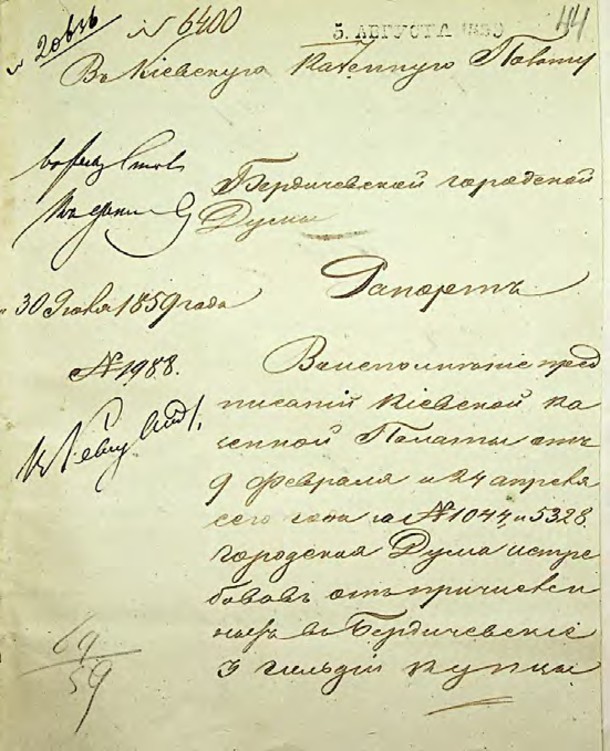 № 20636
№ 6400
5. АВГУСТА 1859
44
Въ Кіевскую Казенную Палату
Бердичевской городской
Думы
Рапортъ
30 Іюля 1859 года
№ 1988.
Во исполненіе пред
писаній Кіевской Ка
зенной Палаты отъ
9 Февраля и 24 апреля
сего года за № 1044, и 5328.
городская Дума истре
бовавъ отъ причислен
ныхъ въ Бердичевскіе
3 гильдіи купцы
69
59